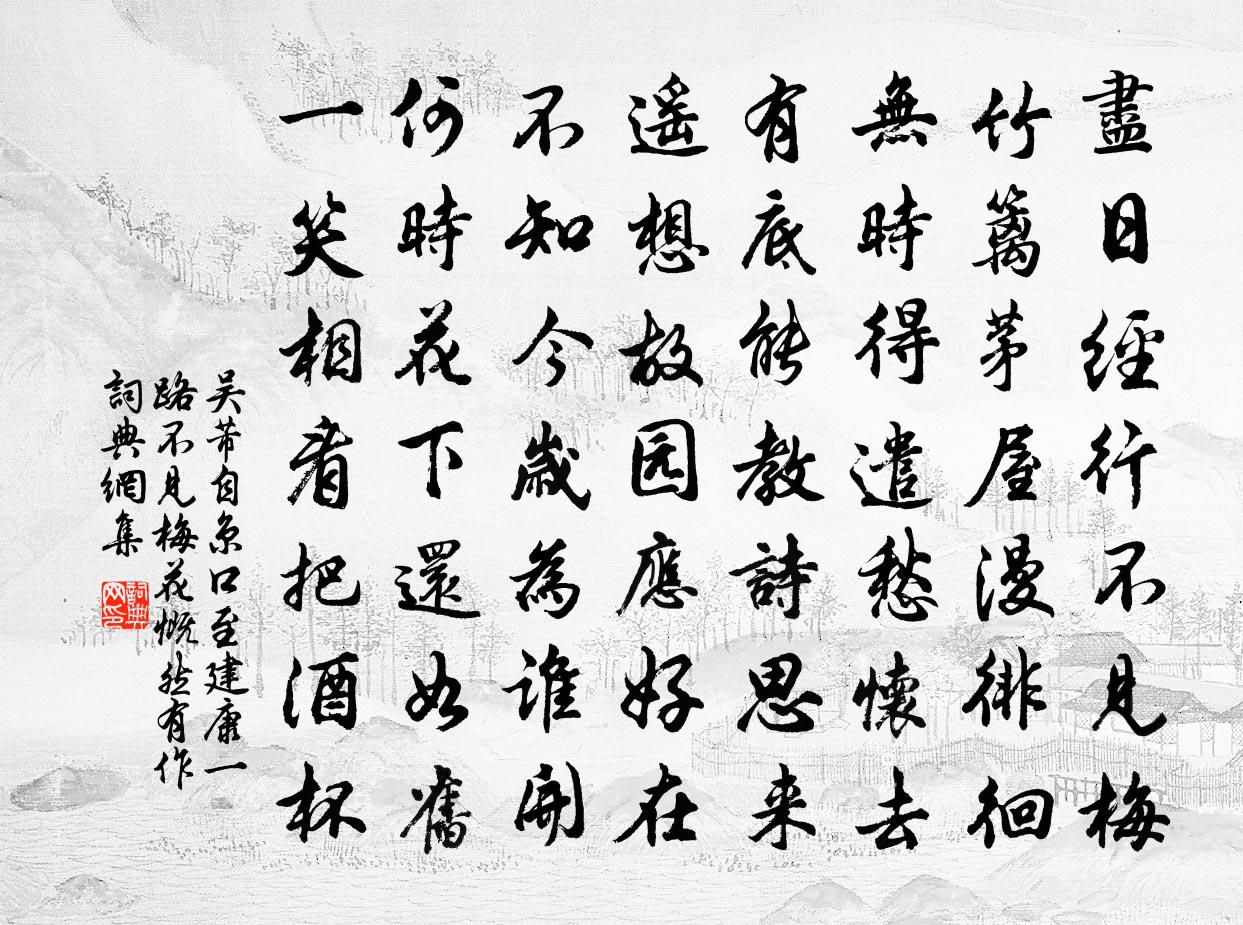 盡日經行不見梅
竹籬茅屋漫徘徊
無時得遣愁懷去
有底能教詩思来
遥想故园應好在
不知今歲為誰開
何時花下還如舊
一笑相看把酒杯
吴芾自京口至建康一
路不見梅花慨然有作
詞典網集
詞典網印